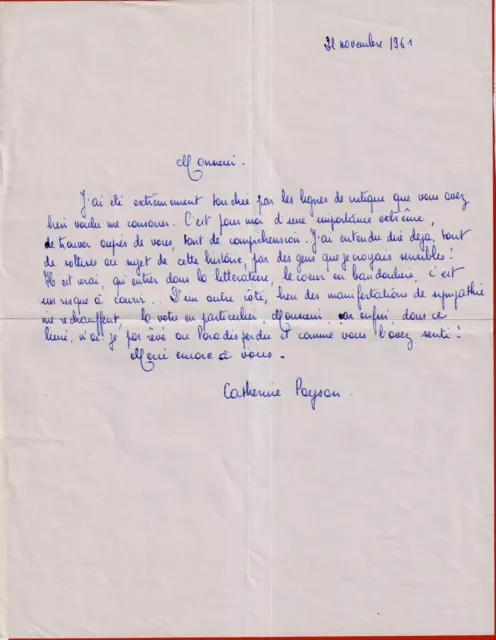 novembre 1961
Monsieur.
J'ai été extrêmement touchée par les lignes de critique que vous avez
bien voulu me consacrer. C'est pour moi d'une importance extrême,
de trouver auprès de vous, tant de compréhension. J'ai entendu dire déjà, tant
de sottises au sujet de cette histoire, par des gens que je croyais sensibles!
Il est vrai, qu'entrer dans la littérature, le coeur en bandoulière, c'est
un risque à courir... D'un autre côté, bien des manifestations de sympathie
me réchauffent, la vôtre en particulier, Monsieur, car enfin, dans ce
livre, n'ai-je pas rêvé au Paradis perdu et comme vous l'avez senti!
Merci encore à vous.
Catherine Paysan.